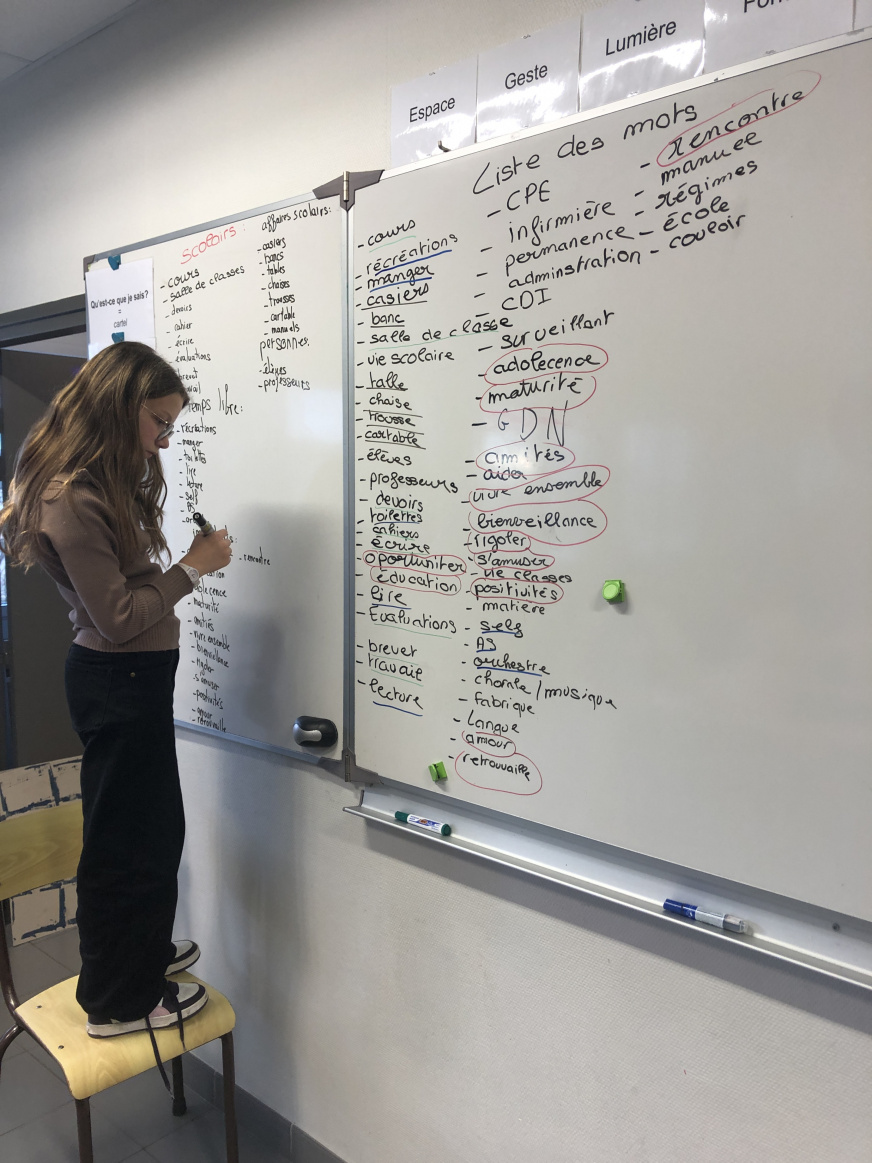 Espace
Geste
Lumière
Qu'est-ce que je sais?
=
cartel
scolairs:
- cours
- salle de classes
devoirs
- cahier
- écrire
évaluations
temps libre:
- récréations
- manger
- toilettes
- lire
- lecture
- self
- AS
- rencontre
- maturité
- amitiés
- vivre ensemble
- bienveillance
- rigoler
- s'amuser
- positivités
- amour
- retrouvaille
affaires scolairs:
- casiers
- bancs
- tables
- chaises
- trousses
- cartable
- manuels
personnes:
- élèves
- professeurs
Liste des mots
- cours
- récréations
- manger
- casiers
- banc
- salle de classe
- vie scolaire
- talle
- chaise
- trousse
- cartable
- élèves
- professeurs
- devoirs
- toilettes
- cahiers
- écrire
- oportuniter
- éducation
- lire
- Evaluations
- brevet
- travail
- lecture
- CPE
- infirmière
- permanence
- adminstration
- CDI
- surveillant
- adolecence
- maturité
- GDN
- amités
- aider
- vivre ensemble
- bienveillance
- rigoler
- s'amuser
- vie classes
- positivités
- matière
- self
- AS
- orchestre
- chorale/musique
- fabrique
- langue
- amour
- retrouvaille
- rencontre
- manuel
- régimes
- école
- couloir